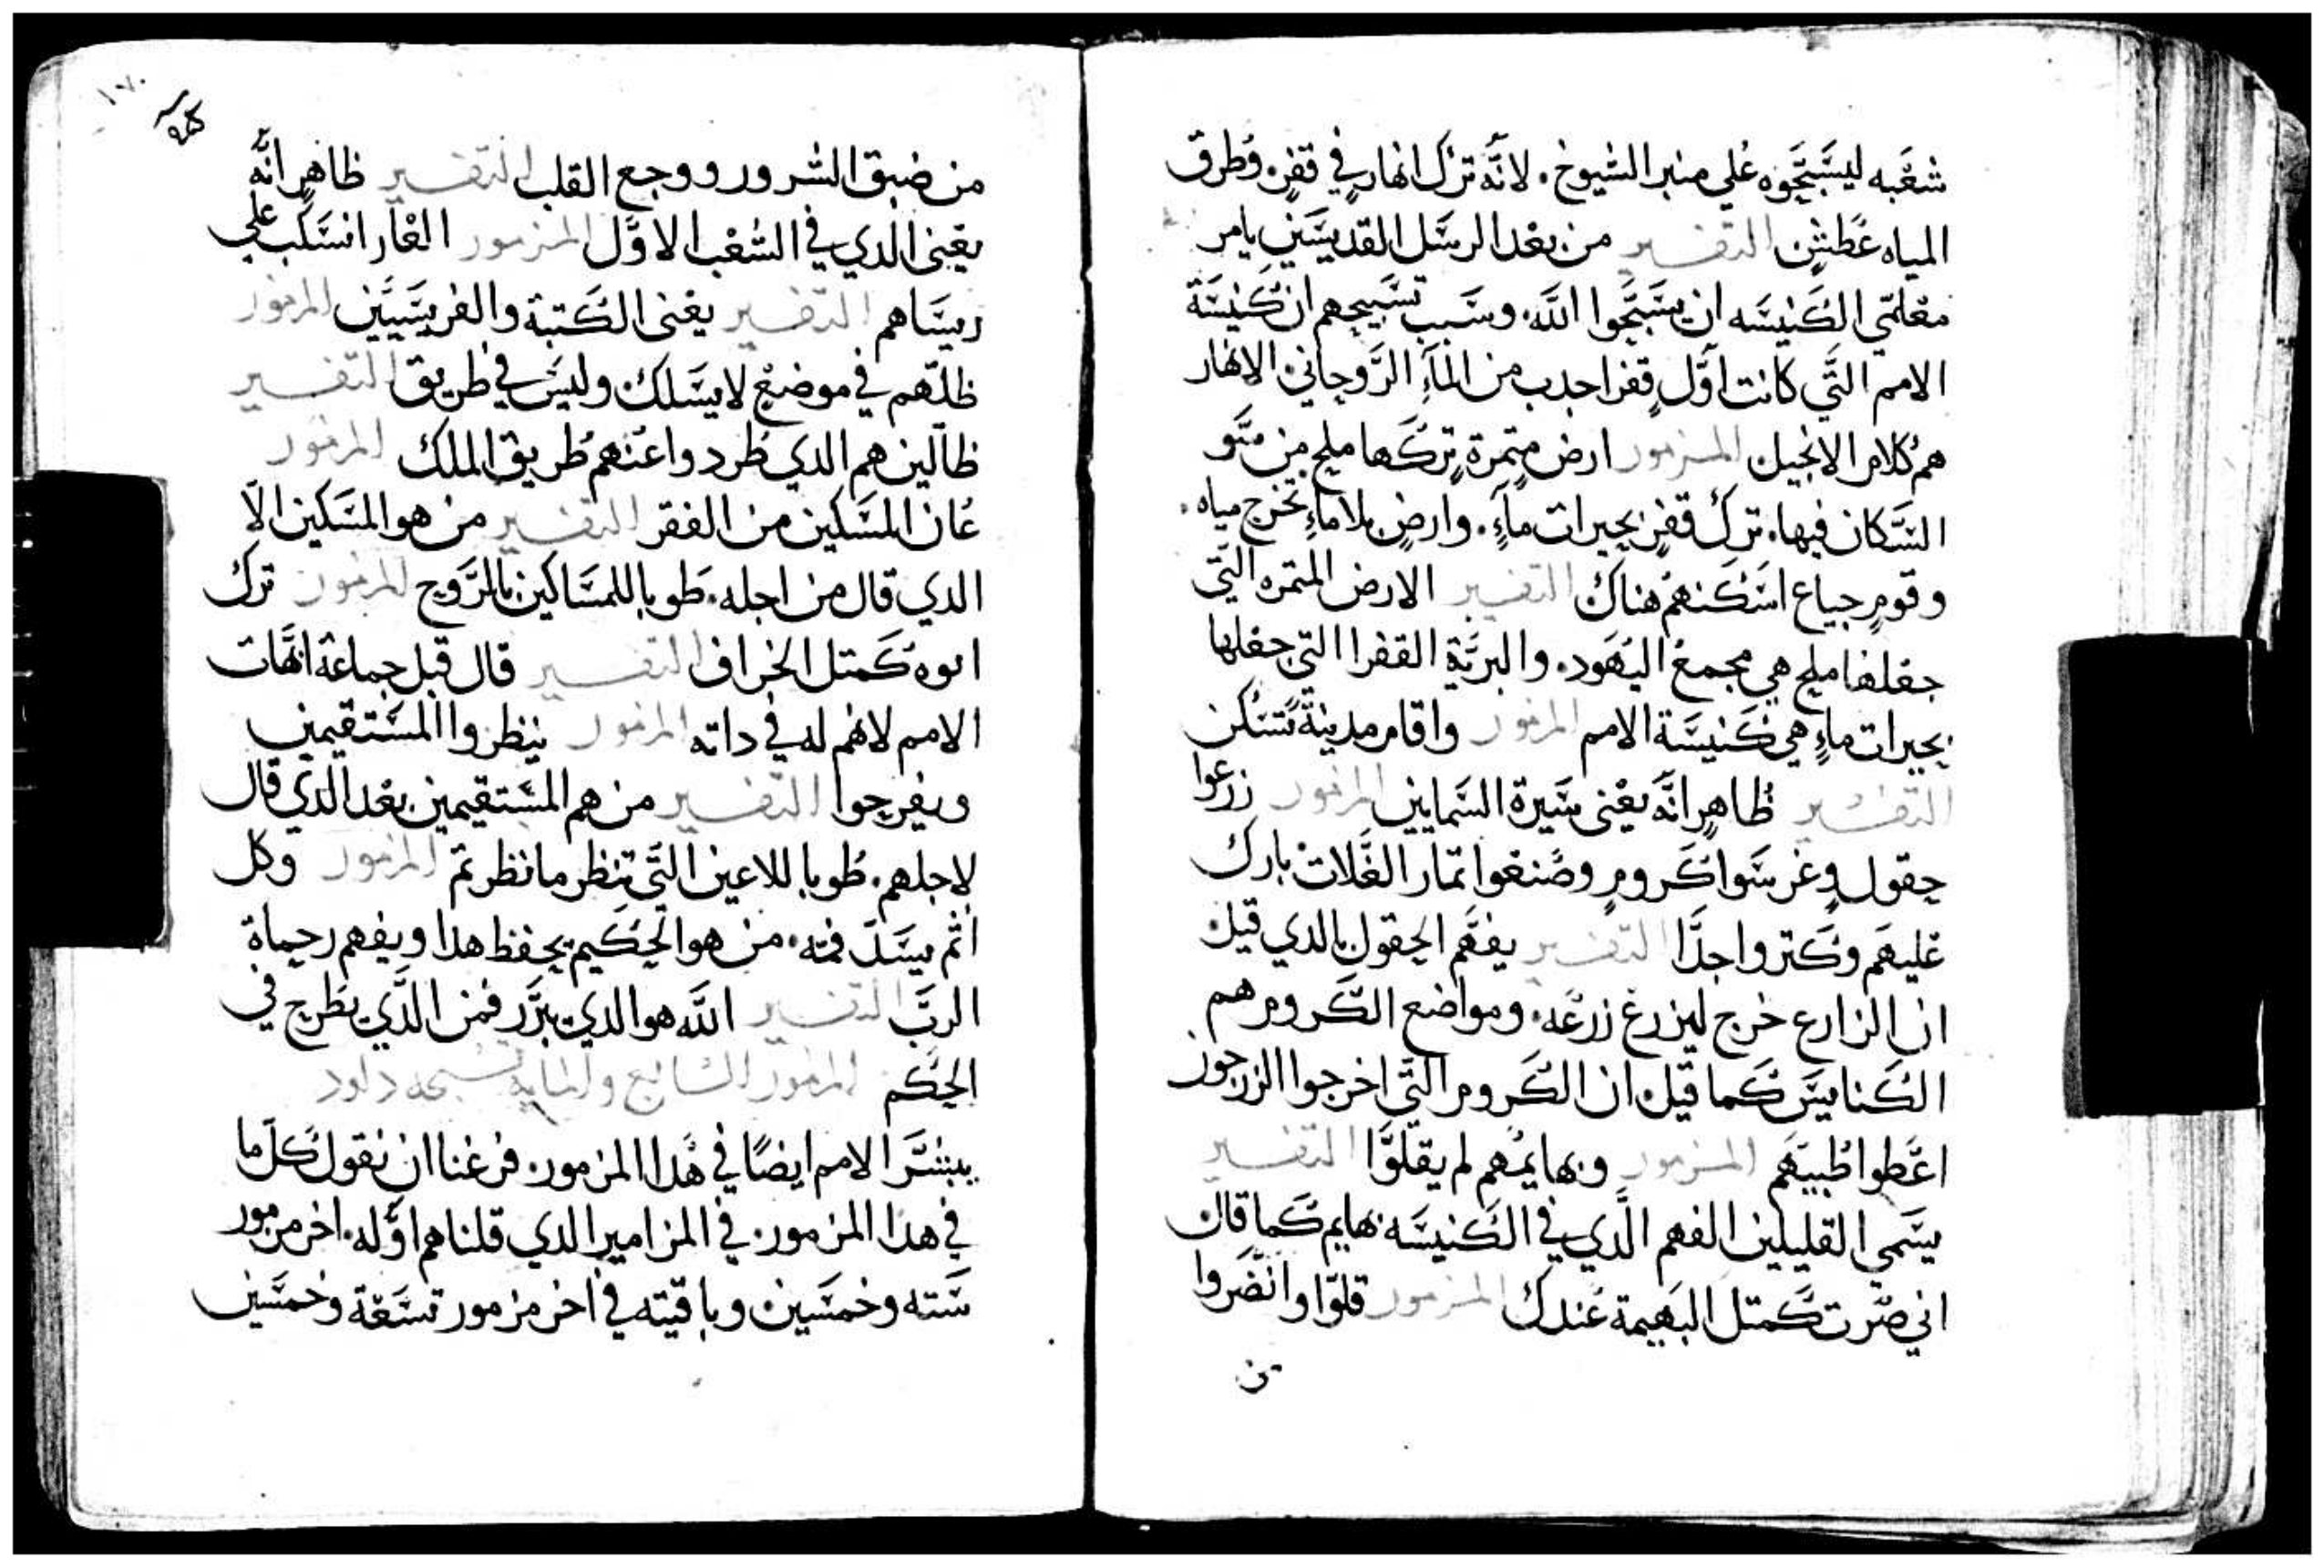 شعبه ليسبحوه على منبر الشيوخ. لانه ترك انهارٍ في قفرٍ. وطرق
المياه عطشٍ التفسير من بعد الرسل القديسين يامر
معلمي الكنيسه ان يسبحوا الله. وسبب تسبيحهم ان كنيسة
الامم التي كانت اولٍ قفرا جدب من المآء الروحاني الانهار
هم كلام الانجيل المزمور ارض متمرة تركها ملح من سو
السكان فيها. ترك قفرٍ بحيرات مآءٍ. وارضٍ بلا ماءٍ تخرج مياه.
وقومٍ جياع اسكنهم هناك التفسير الارض المتمره التي
جعلها ملح هي مجمع اليهود. والبرية القفرا التي جعلها
بحيرات ماءٍ هي كنيسة الامم المزمور واقام مدينة تسكن
التفسير ظاهرٍ انه يعنى سيرة السمايين المزمور زرعوا
حقولٍ وغرسوا كرومٍ وصنعوا تمار الغلات بارك
عليهم وكتروا جدًا التفسير يفهم الحقول بالدي قيل
ان الزارع خرج ليزرع زرعه. ومواضع الكروم هم
الكنايس كما قيل ان الكروم التي اخرجوا الزرجون
اعطوا طيبهم المزمور وبهايمهم لم يقلوا التفسير
يسمي القليلين الفهم الدي في الكنيسه بهايم كما قال
اني صرت كمتل البهيمة عندك المزمور قلوا وانضروا
من
من ضيق الشرور ووجع القلب التفسير ظاهرٍ انه
يعنى الدي في الشعب الاول المزمور العار انسكب على
ريساهم التفسير يعنى الكتبة والفريسيين المزمور
ظلهم في موضعٍ لا يسلك وليس في طريق التفسير
ظالين هم الدي طردوا عنهم طريق الملك المزمور
عان المسكين من الفقر التفسير من هو المسكين الا
الدي قال من اجله. طوبا للمساكين بالروح المزمور ترك
ابوه كمتل الخراف التفسير قال قبل جماعة
الامم لانهم له في داته المزمور ينظروا المستقيمين
ويفرحوا التفسير من هم المستقيمين بعد الدي قال
لاجلهم. طوبا للاعين التي تنظر ما نظرتم المزمور وكل
اثم يسد فمه. من هو الحكيم يحفظ هدا ويفهم رحماة
الرب التفسير الله هو الدي يبرر فمن الدي يطرح في
الحكم المزمور السابع والمايه تسبحه داود
يبشر الامم ايضًا في هدا المزمور. فرغنا ان نقول كل ما
في هدا المزمور. في المزامير الدي قلناهم اوله. اخر مزمور
سته وخمسين وباقيته في اخر مزمور تسعة وخمسين